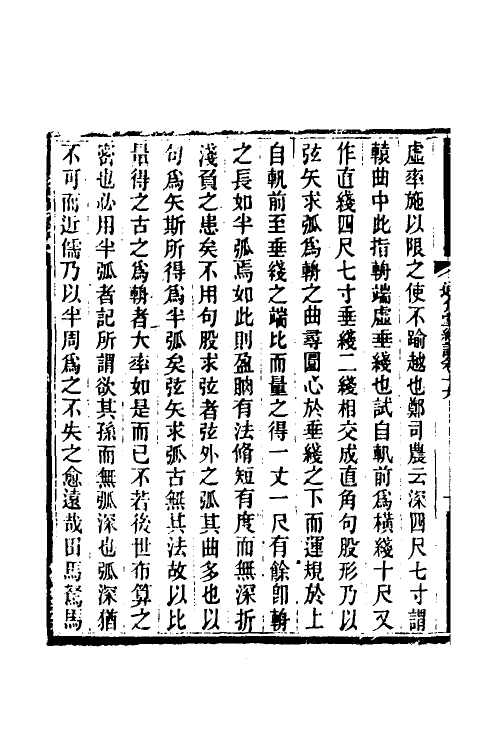 虛率施以限之使不踰越也鄭司農云深四尺七寸謂
轅曲中此指輈端虛垂綫也試自軓前爲橫綫十尺又
作直綫四尺七寸垂綫二綫相交成直角句股形乃以
弦矢求弧爲輈之曲尋圓心於垂綫之下而運規於上
自軓前至垂綫之端比而量之得一丈一尺有餘卽輈
之長如半弧焉如此則盈朒有法脩短有度而無深折
淺負之患矣不用句股求弦者弦外之弧其曲多也以
句爲矢斯所得爲半弧矣弦矢求弧古無其法故以比
量得之古之爲輈者大率如是而已不若後世布算之
密也必用半弧者記所謂欲其孫而無弧深也弧深猶
不可而近儒乃以半周爲之不失之愈遠哉田馬駑馬